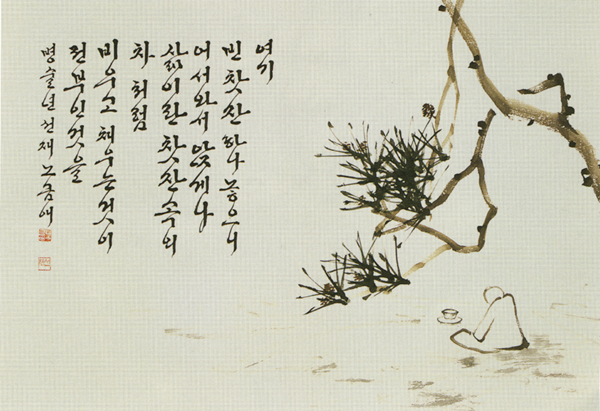 여기
빈 찻잔 하나 놓으니
어서와서 앉게나
삶이란 찻잔 속의
차 처럼
비우고 채우는 것이
전부인것을
병술년 선재